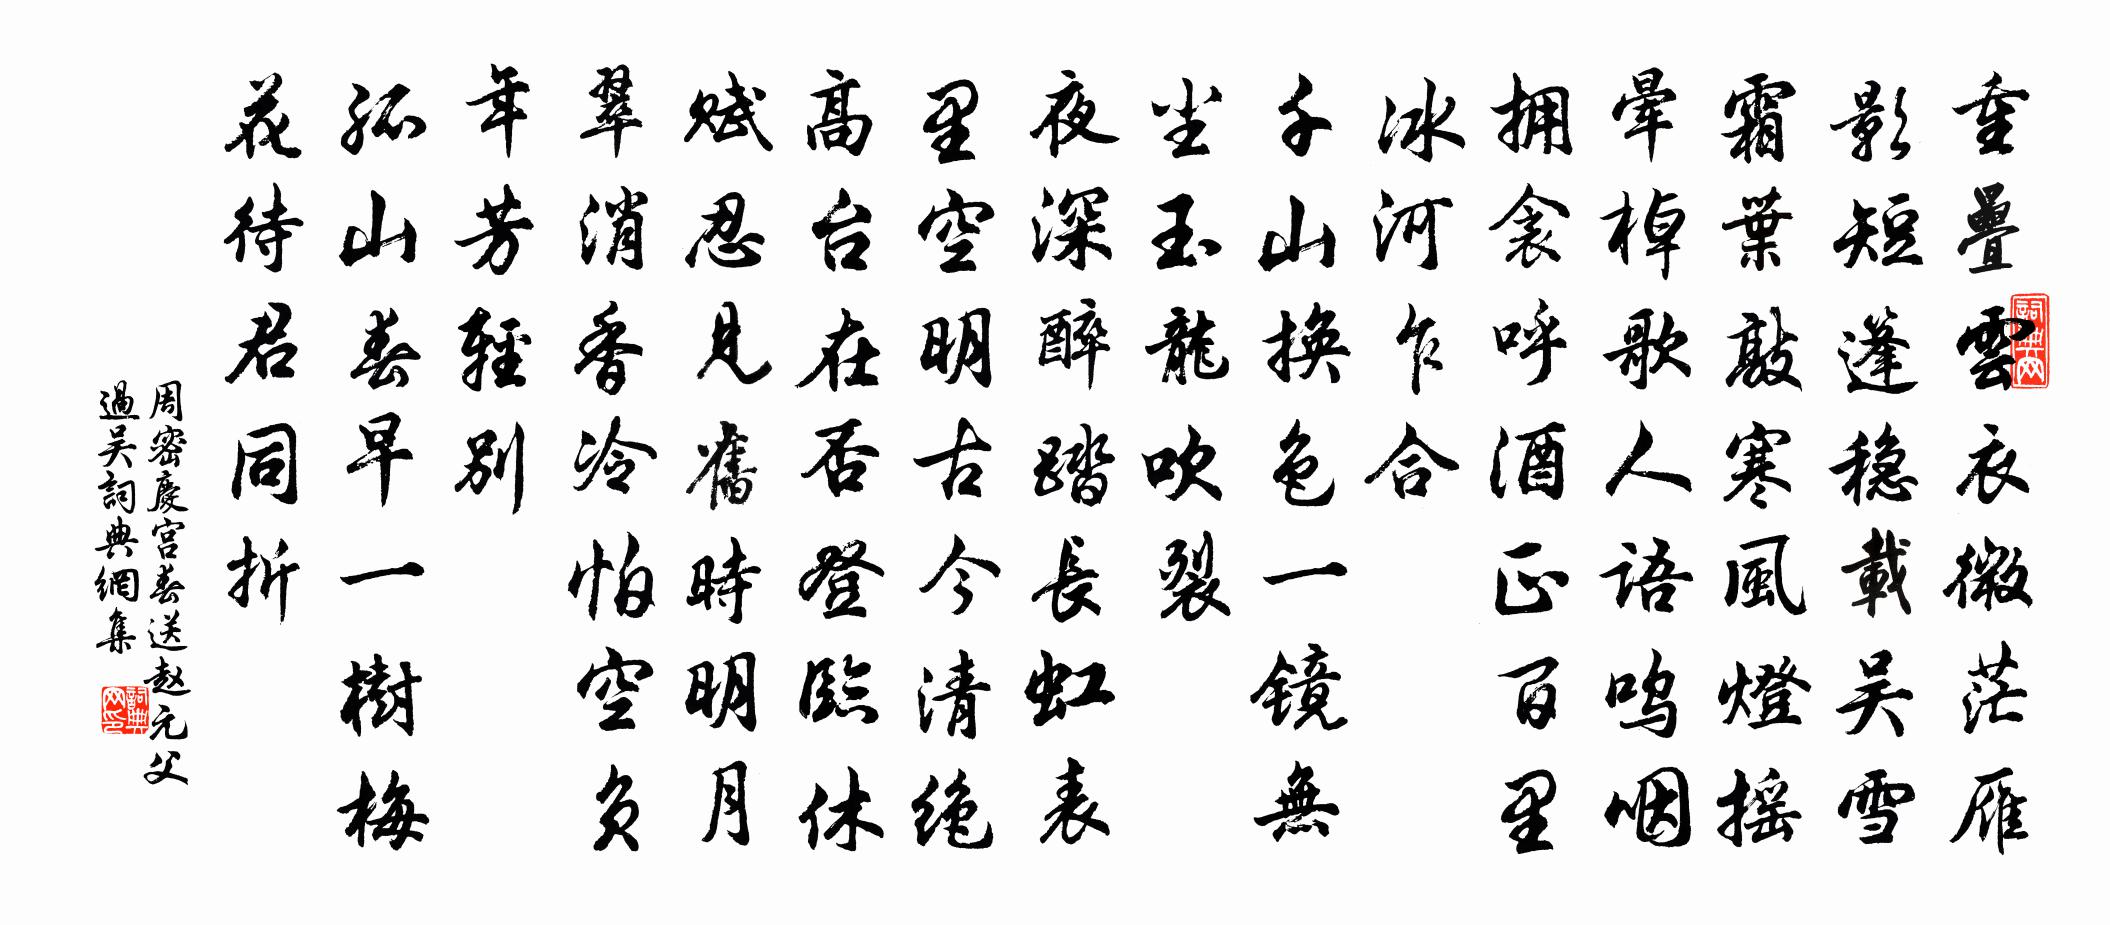 重疊雲衣微茫雁
影短蓬穩載吴雪
霜葉敲寒風燈摇
暈棹歌人語鸣咽
拥衾呼酒正百里
冰河乍合
千山换色一镜無
尘玉龍吹裂
夜深醉踏長虹表
里空明古今清绝
高台在否登臨休
赋忍見舊時明月
翠消香冷怕空负
年芳輕别
孤山春早一樹梅
花待君同折
周密慶宫春送赵元父
過吴詞典網集
詞典网
詞典网印